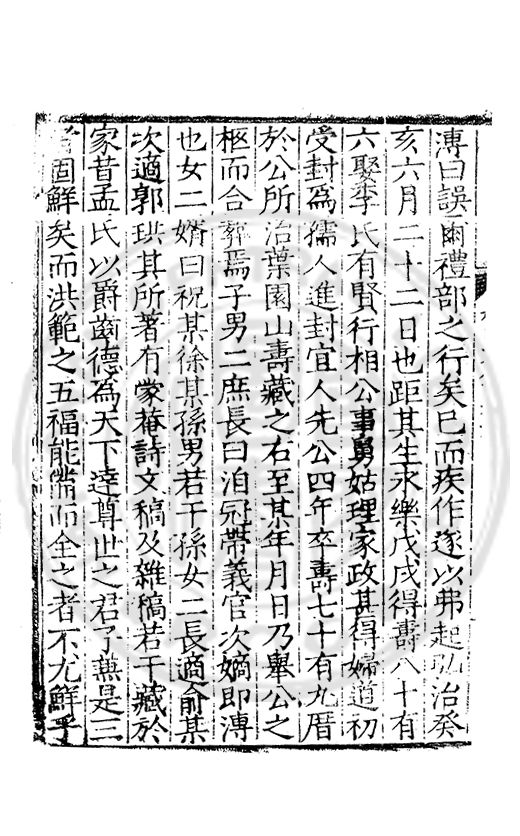 溥曰誤爾禮部之行矣已而疾作遂以弗起弘治癸
亥六月二十二日也距其生永樂戊戌得壽八十有
六娶李氏有賢行相公事舅姑理家政甚得婦道初
受封為孺人進封宜人先公四年卒壽七十有九厝
於公所治葉園山壽藏之右至某年月日乃舉公之
柩而合葬焉子男二庶長曰洎冠帶義官次嫡即溥
也女二婿曰祝某徐某孫男若干孫女二長適俞某
次適郭珙其所著有蒙菴詩文稿及雜稿若干藏於
家昔孟氏以爵齒德為天下達尊世之君子蕪是三
者固鮮矣而洪範之五福能備而全之者不尤鮮乎